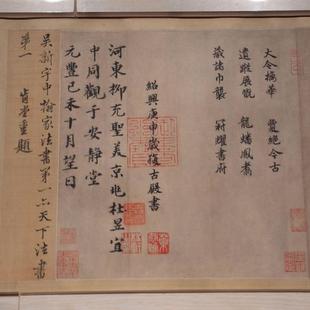 大令摛華　敻絕今古
遺蹤展翫　龍蟠鳳翥
藏諸巾襲　冠耀書府
紹興庚申歲復古殿書
河東柳充聖美京兆杜昱宜
中同觀于安靜堂
元豐己未十月望日
吳新宇中翰家法書第一亦天下法書
第一　肯堂重題